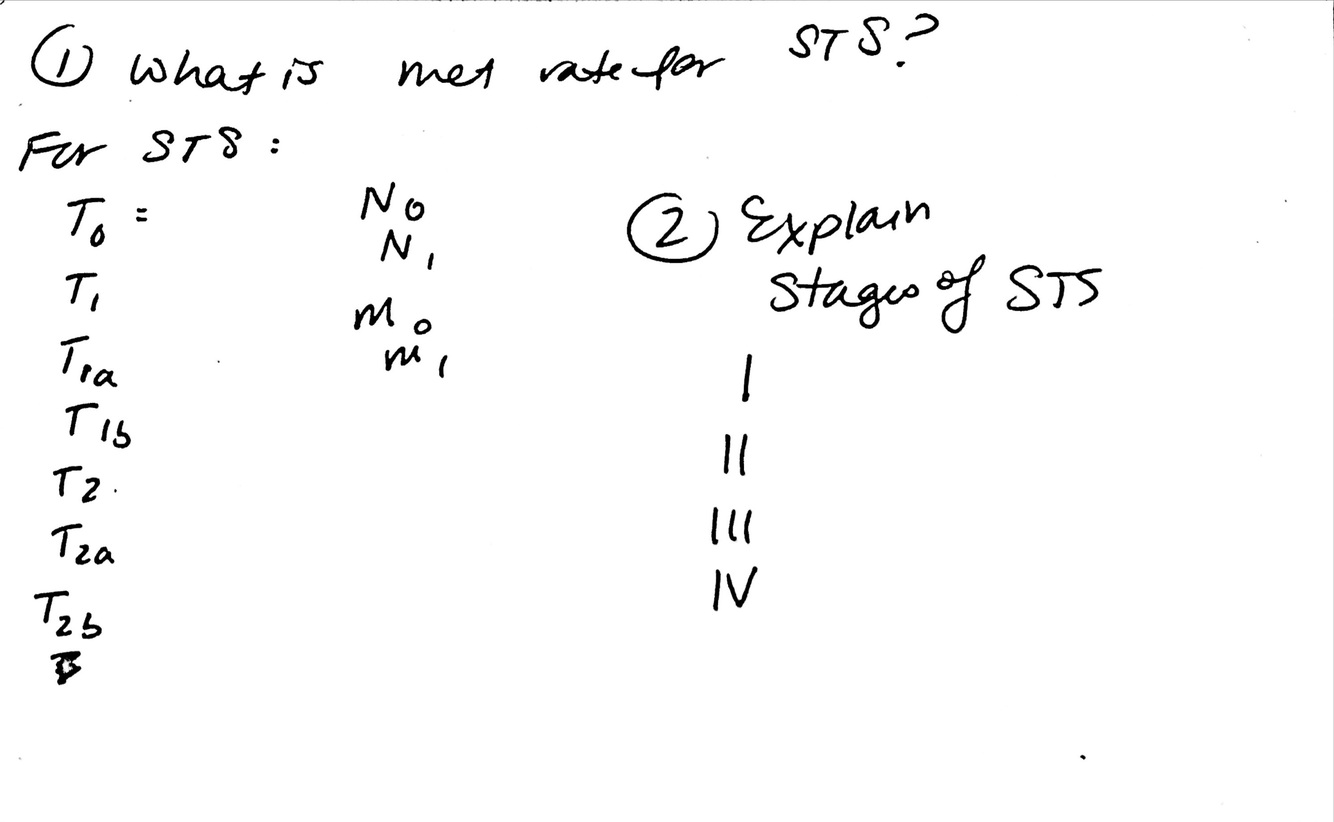 ① What is met rate for STS?
For STS :
T0 =
T1
T1a
T1b
T2.
T2a
T2b
N0
N1
M0
M1
② Explain
Stages of STS
I
II
III
IV